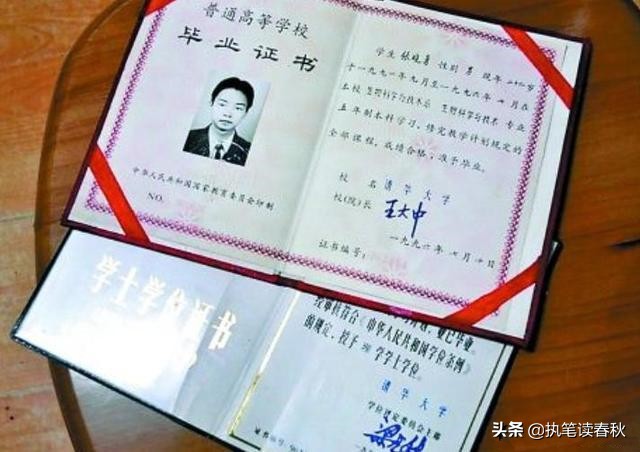 普通高等学校
毕业证书
中华人民共和国国家教育委员会印制
NO.
学生 张晓勇 性别 男 现年 二十二岁
于一九九一年九月至一九九六年七月在
本校 生物科学与技术系 生物科学与技术 专业
五年制本科学习，修完教学计划规定的
全部课程，成绩合格，准予毕业。
校 名 清华大学
校(院)长 王大中
证书编号:
一九九六年七月 日
学士学位证书
业已毕业。
经审核符合《中华人民共和国学位条例》
的规定，授予 理 学学士学位。
清华大学
学位评定委员会主席
证书编号
头条 @执笔读春秋